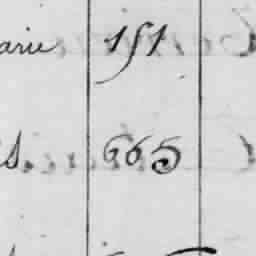 arie 151
s. 665